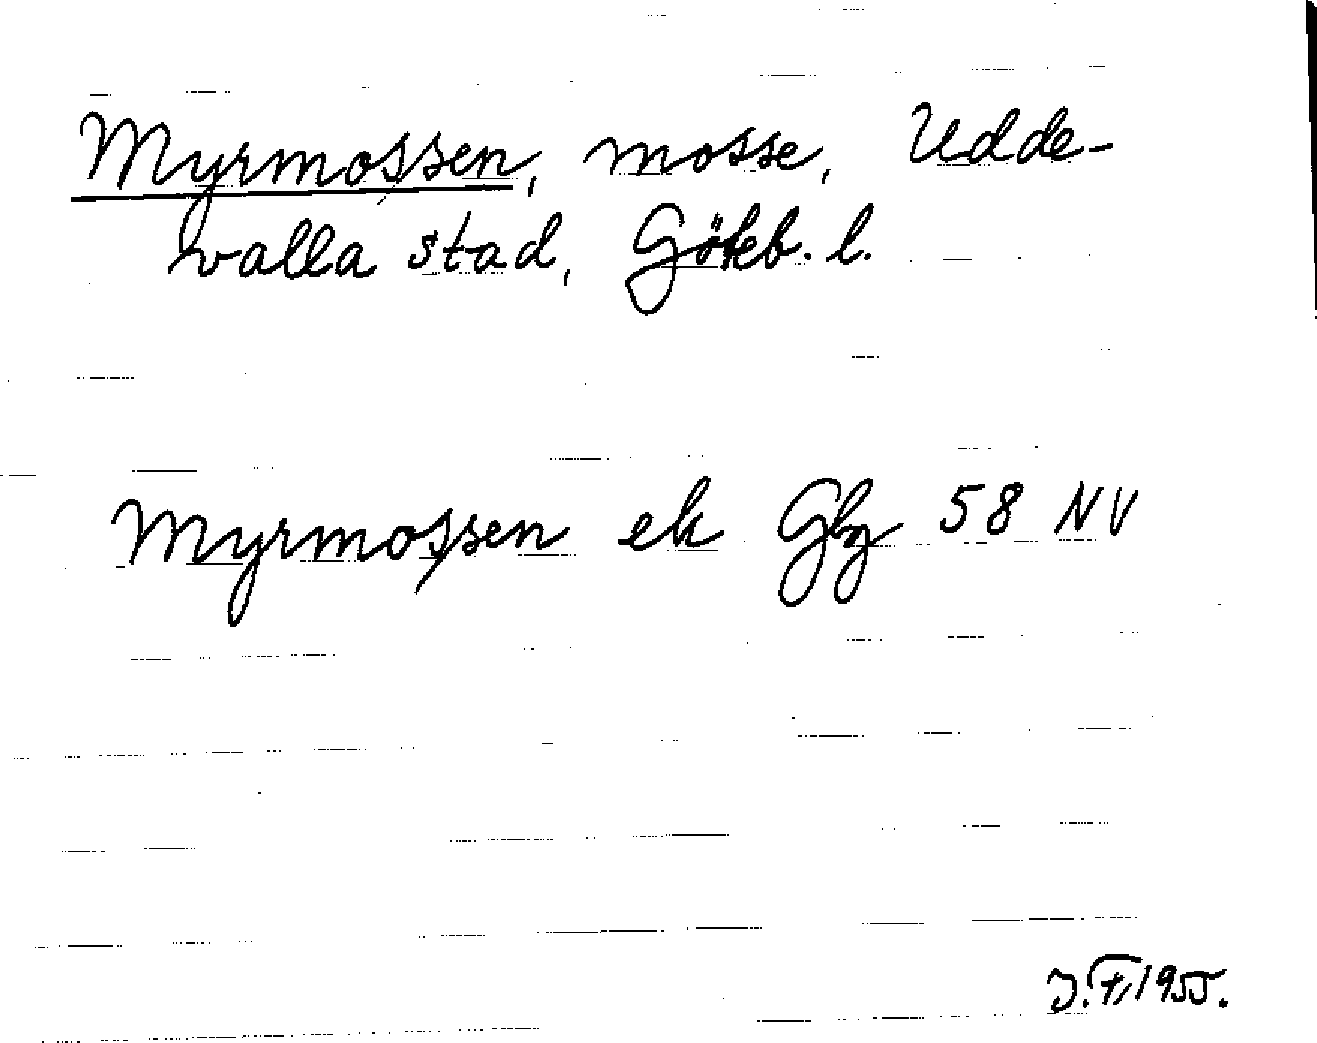 Myrmossen, mosse, Udde-
valla stad, Göteb. l.
Myrmossen ek Gbg 58 NV
1955.